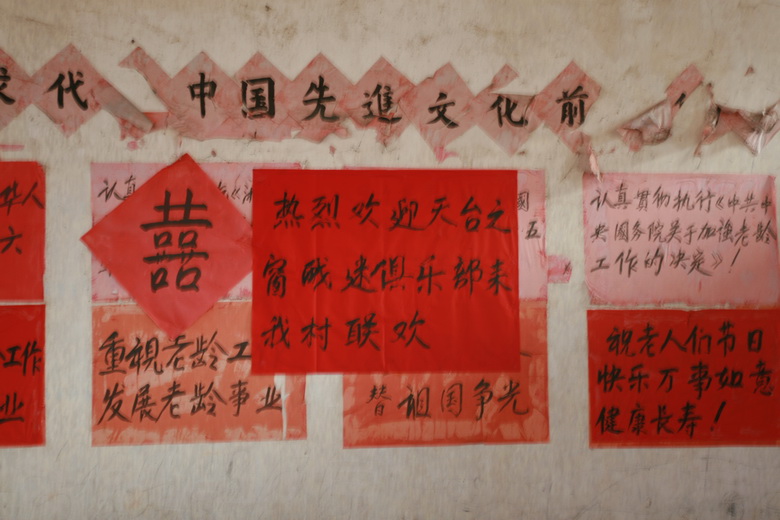 代 中国先進文化前
华人
六
工作
业
认真
囍
热烈欢迎天台之
窗戏迷俱乐部来
我村联欢
國
五
重视老龄工
发展老龄事业
替祖国争光
认真贯彻执行《中共中
央国务院关于加强老龄
工作的决定》!
祝老人们节日
快乐万事如意
健康长寿!